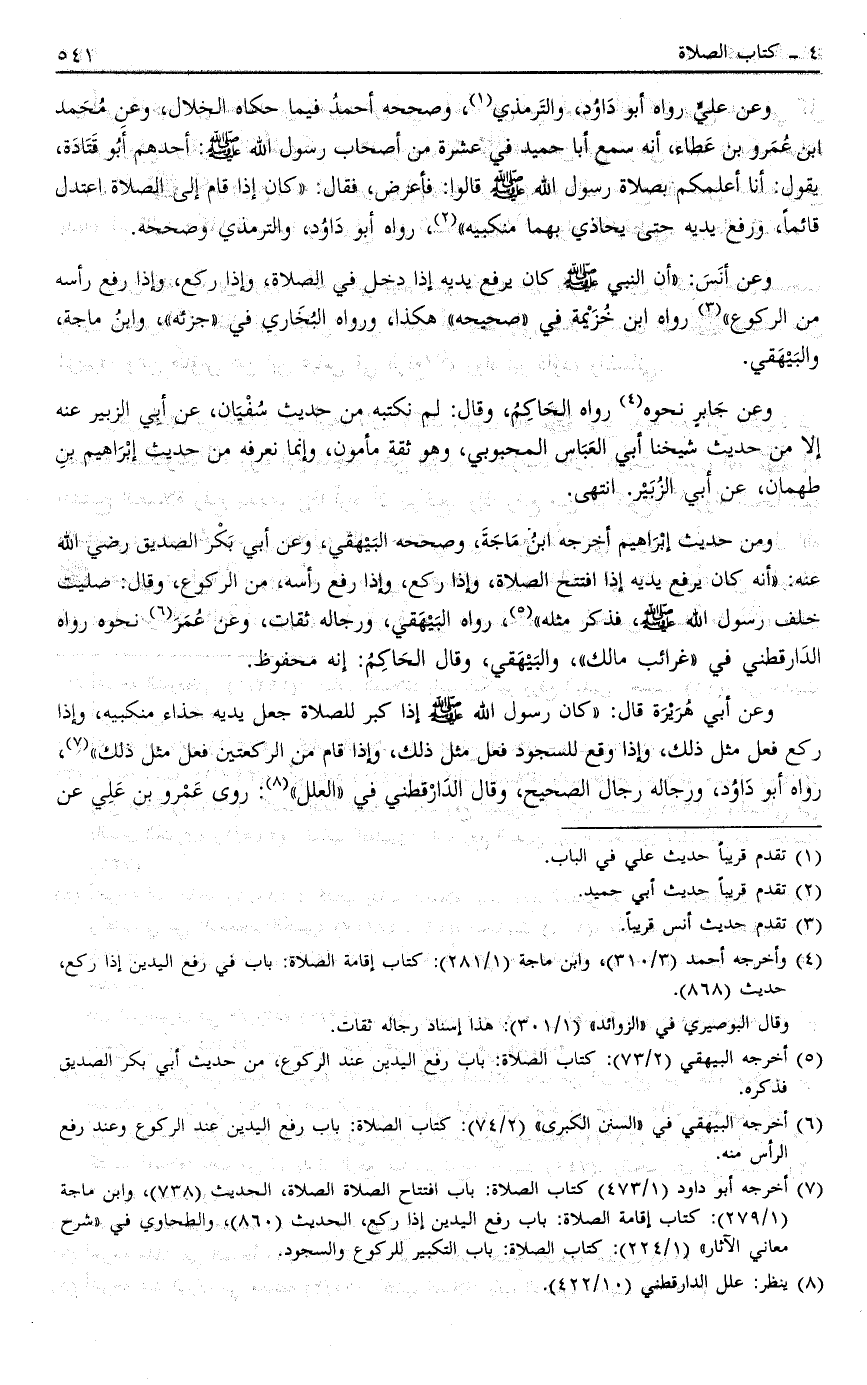 ٤ - كتاب الصلاة ٥٤١
وعن عليٍّ رواه أبو دَاوُد، والتَرمذي(١)، وصححه أحمدُ فيما حكاه الخلال، وعن مُحَمد
ابن عُمَرو بن عَطاء، أنه سمع أبا حميد في عشرة من أصحاب رسول الله ﷺ: أحدهم أَبُو قَتَادَة،
يقول: أنا أعلمكم بصلاة رسول الله ﷺ قالوا: فأعرض، فقال: «كان إذا قام إلى الصلاة اعتدل
قائماً، ورفع يديه حتى يحاذي بهما منكبيه»(٢)، رواه أبو دَاوُد، والترمذي وصححه.
وعن أنَسَ: «أن النبي ﷺ كان يرفع يديه إذا دخل في الصلاة، وإذا ركع، وإذا رفع رأسه
من الركوع»(٣) رواه ابن خُزَيْمة في «صحيحه» هكذا، ورواه البُخَاري في «جزئه»، وابنُ ماجة،
والبَيْهَقي.
وعن جَابرِ نحوه(٤) رواه الحَاكِمُ، وقال: لم نكتبه من حديث سُفْيَان، عن أبي الزبير عنه
إلا من حديث شيخنا أبي العَبَاس المحبوبي، وهو ثقة مأمون، وإنما نعرفه من حديث إبْرَاهيم بنِ
طهمان، عن أبي الزُبَيْر. انتهى.
ومن حديث إبْرَاهيم أخرجه ابنُ مَاجَةَ، وصححه البَيْهقي، وعن أبي بَكْر الصديق رضي الله
عنه: «أنه كان يرفع يديه إذا افتتح الصلاة، وإذا ركع، وإذا رفع رأسه، من الركوع، وقال: صليت
خلف رسول الله ﷺ، فذكر مثله»(٥)، رواه البَيْهَقي، ورجاله ثقات، وعن عُمَرَ(٦) نحوه رواه
الدَارقطني في «غرائب مالك»، والبَيْهَقي، وقال الحَاكِمُ: إنه محفوظ.
وعن أبي هُرَيْرَة قال: «كان رسول الله ﷺ إذا كبر للصلاة جعل يديه حذاء منكبيه، وإذا
ركع فعل مثل ذلك، وإذا وقع للسجود فعل مثل ذلك، وإذا قام من الركعتين فعل مثل ذلك»(٧)،
رواه أبو دَاوُد، ورجاله رجال الصحيح، وقال الدَارْقطني في «العلل»(٨): روى عَمْرو بن عَلِي عن
(١) تقدم قريباً حديث علي في الباب.
(٢) تقدم قريباً حديث أبي حميد.
(٣) تقدم حديث أنس قريباً.
(٤) وأخرجه أحمد (٣١٠/٣)، وابن ماجة (٢٨١/١): كتاب إقامة الصلاة: باب في رفع اليدين إذا ركع،
حديث (٨٦٨).
وقال البوصيري في «الزوائد» (٣٠١/١): هذا إسناد رجاله ثقات.
(٥) أخرجه البيهقي (٧٣/٢): كتاب الصلاة: باب رفع اليدين عند الركوع، من حديث أبي بكر الصديق
فذكره.
(٦) أخرجه البيهقي في «السنن الكبرى» (٧٤/٢): كتاب الصلاة: باب رفع اليدين عند الركوع وعند رفع
الرأس منه.
(٧) أخرجه أبو داود (٤٧٣/١) كتاب الصلاة: باب افتتاح الصلاة الصلاة، الحديث (٧٣٨)، وابن ماجة
(٢٧٩/١): كتاب إقامة الصلاة: باب رفع اليدين إذا ركع، الحديث (٨٦٠)، والطحاوي في «شرح
معاني الآثار» (٢٢٤/١): كتاب الصلاة: باب التكبير للركوع والسجود.
(٨) ينظر: علل الدارقطني (٤٢٢/١٠).